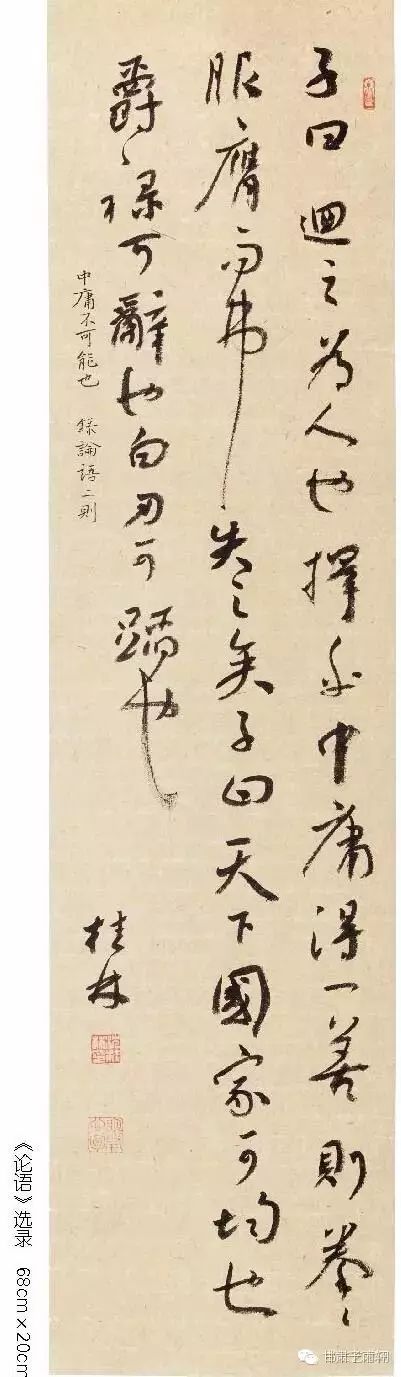 子曰迴之為人也擇乎中庸得一善則拳〻
服膺而弗失之矣子曰天下國家可均也
爵祿可辭也白刃可蹈也
中庸不可能也 錄論語二則
桂林
《论语》选录 68cm×20cm